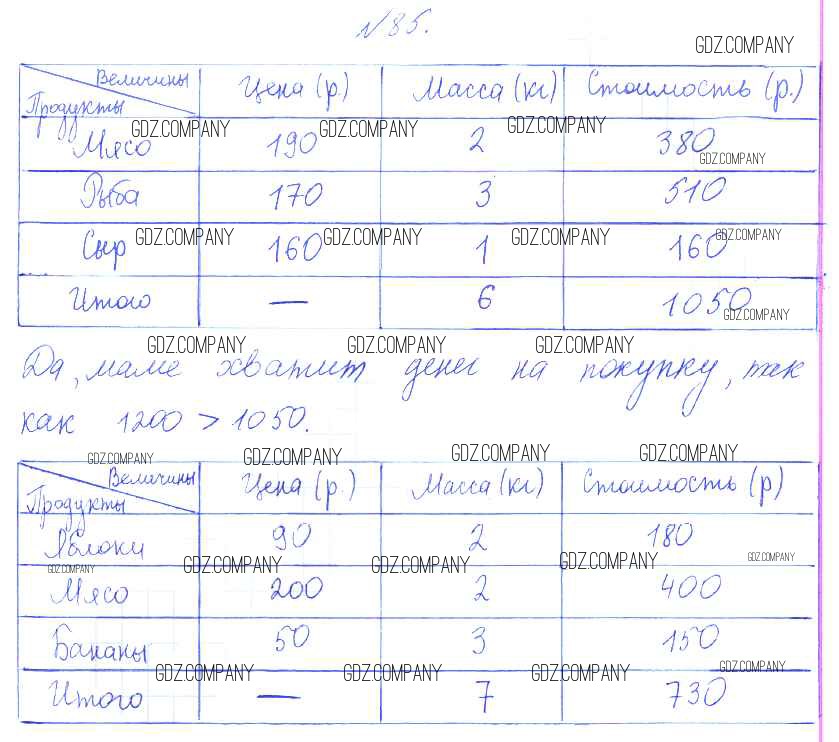 №85.
GDZ.COMPANY
Величины Цена (р.) Масса (кг) Стоимость (р.)
Продукты
GDZ.COMPANY GDZ.COMPANY GDZ.COMPANY
Мясо 190 2 380
GDZ.COMPANY
Рыба 170 3 510
GDZ.COMPANY GDZ.COMPANY GDZ.COMPANY GDZ.COMPANY
Сыр 160 1 160
Итого — 6 1050
GDZ.COMPANY
GDZ.COMPANY GDZ.COMPANY GDZ.COMPANY
Да, маме хватит денег на покупку, так
как 1200 > 1050.
GDZ.COMPANY GDZ.COMPANY GDZ.COMPANY GDZ.COMPANY
Величины Цена (р.) Масса (кг) Стоимость (р)
Продукты
Яблоки 90 2 180
GDZ.COMPANY GDZ.COMPANY GDZ.COMPANY GDZ.COMPANY GDZ.COMPANY
Мясо 200 2 400
Бананы 50 3 150
GDZ.COMPANY GDZ.COMPANY GDZ.COMPANY GDZ.COMPANY
Итого — 7 730